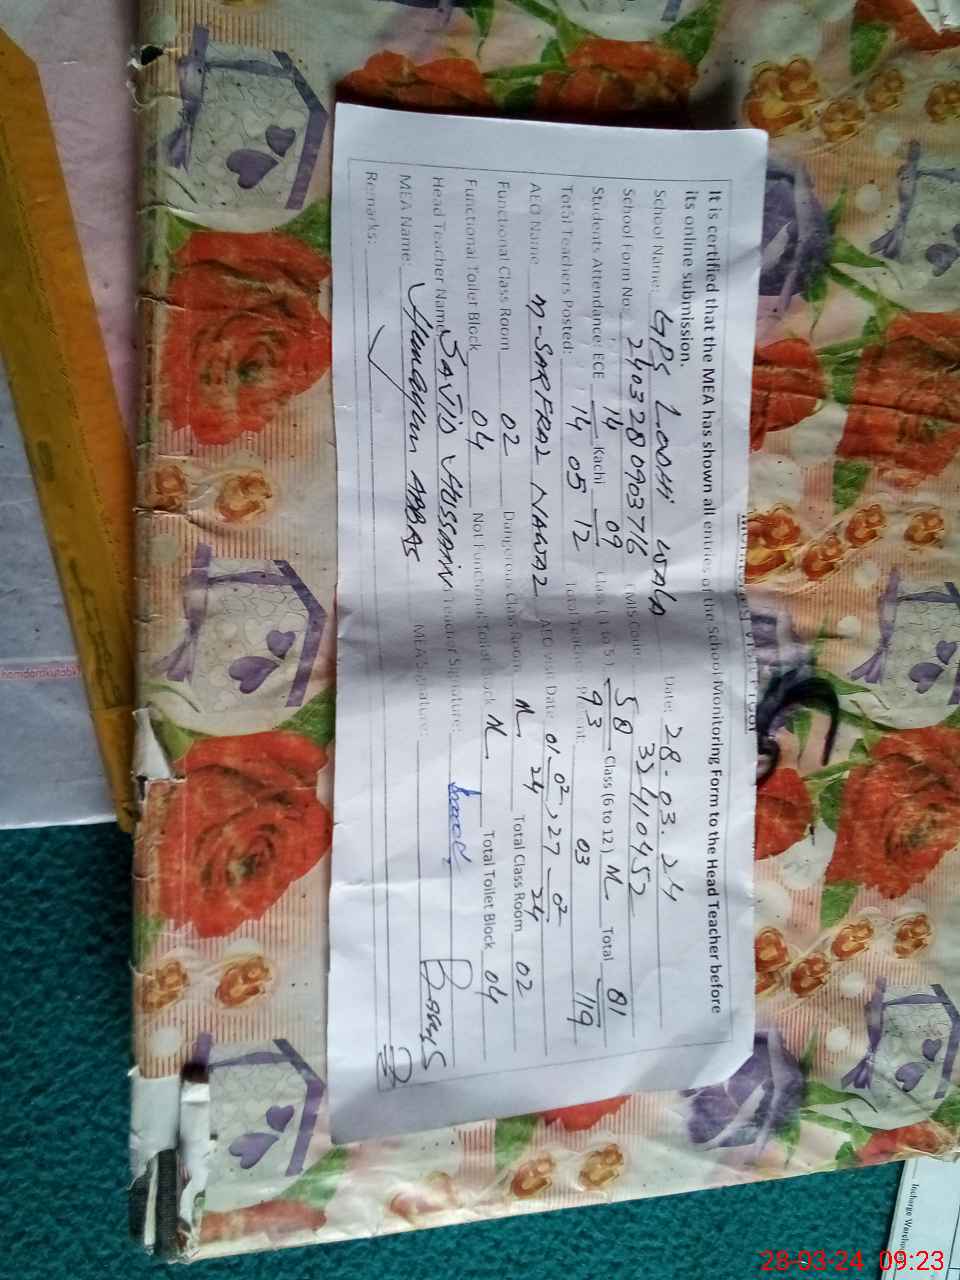 It is certified that the MEA has shown all entries of the School Monitoring Form to the Head Teacher before
its online submission.
School Name: GPS LOOHI WALA Date: 28-03-24
School Form No: 2403280903716 EMIS Code: 33410452
Students Attendance: ECE 14/14 Kachi 09/12 Class (1 to 5) 58/93 Class (6 to 12) N Total 81/119
Total Teachers Posted: 05 Total Teachers Present: 03
AEO Name M-SARFRAZ NAWAZ AEO Visit Date: 01-02-24, 27-02-24
Functional Class Room 02 Dangerous Class Room N Total Class Room 02
Functional Toilet Block 04 Not Functional Toilet Block N Total Toilet Block 04
Head Teacher Name: SAJID HUSSAIN Teacher Signature:
MEA Name: Humayun ABBAS MEA Signature:
Remarks:
Incharge
28-03-24 09:23